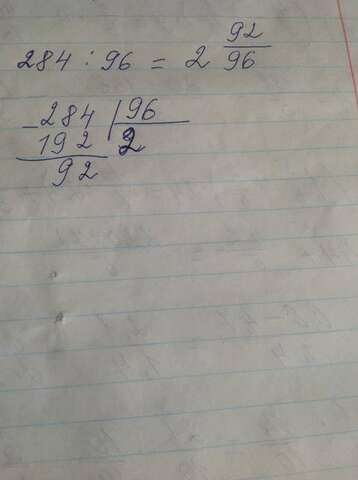 284 : 96 = 2 92/96
- 284 | 96
192 2
92